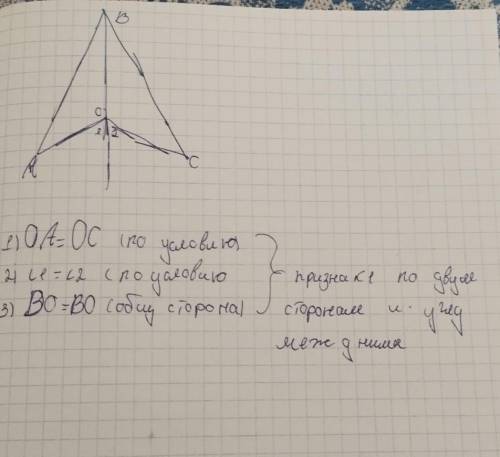 B
O
1 2
A
C
1) OA = OC (по условию)
2) ∠1 = ∠2 (по условию
3) BO = BO (общ сторона)
признак 1 по двум
сторонам и углу
между ними